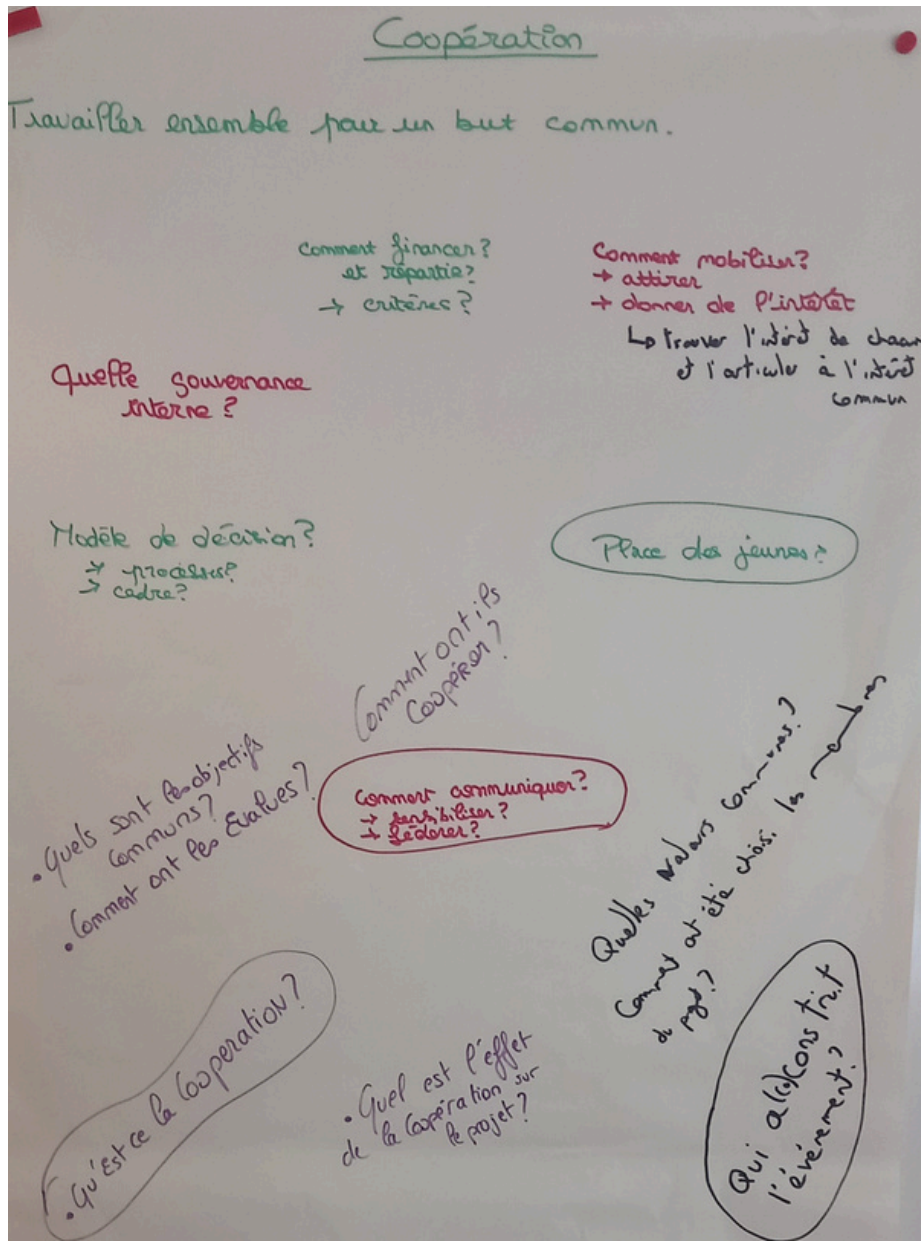 Coopération
Travailler ensemble pour un but commun.
Comment financer?
et répartie?
→ critères?
Comment mobiliser?
→ attirer
→ donner de l'intérêt
↳ Trouver l'intérêt de chacun
et l'articuler à l'intérêt
commun
Quelle gouvernance
interne?
Modèle de décision?
→ processus?
→ cadre?
Place des jeunes?
Comment ont ils
Coopérer?
• Quels sont les objectifs
communs?
• Comment ont les Evalues?
Comment communiquer?
→ sensibiliser?
→ fédérer?
Quelles valeurs communes?
Comment ont été choisi les membres
du projet?
• Qu'Est ce la Cooperation?
• Quel est l'effet
de la Coopération sur
le projet?
Qui a (co)construit
l'événement?